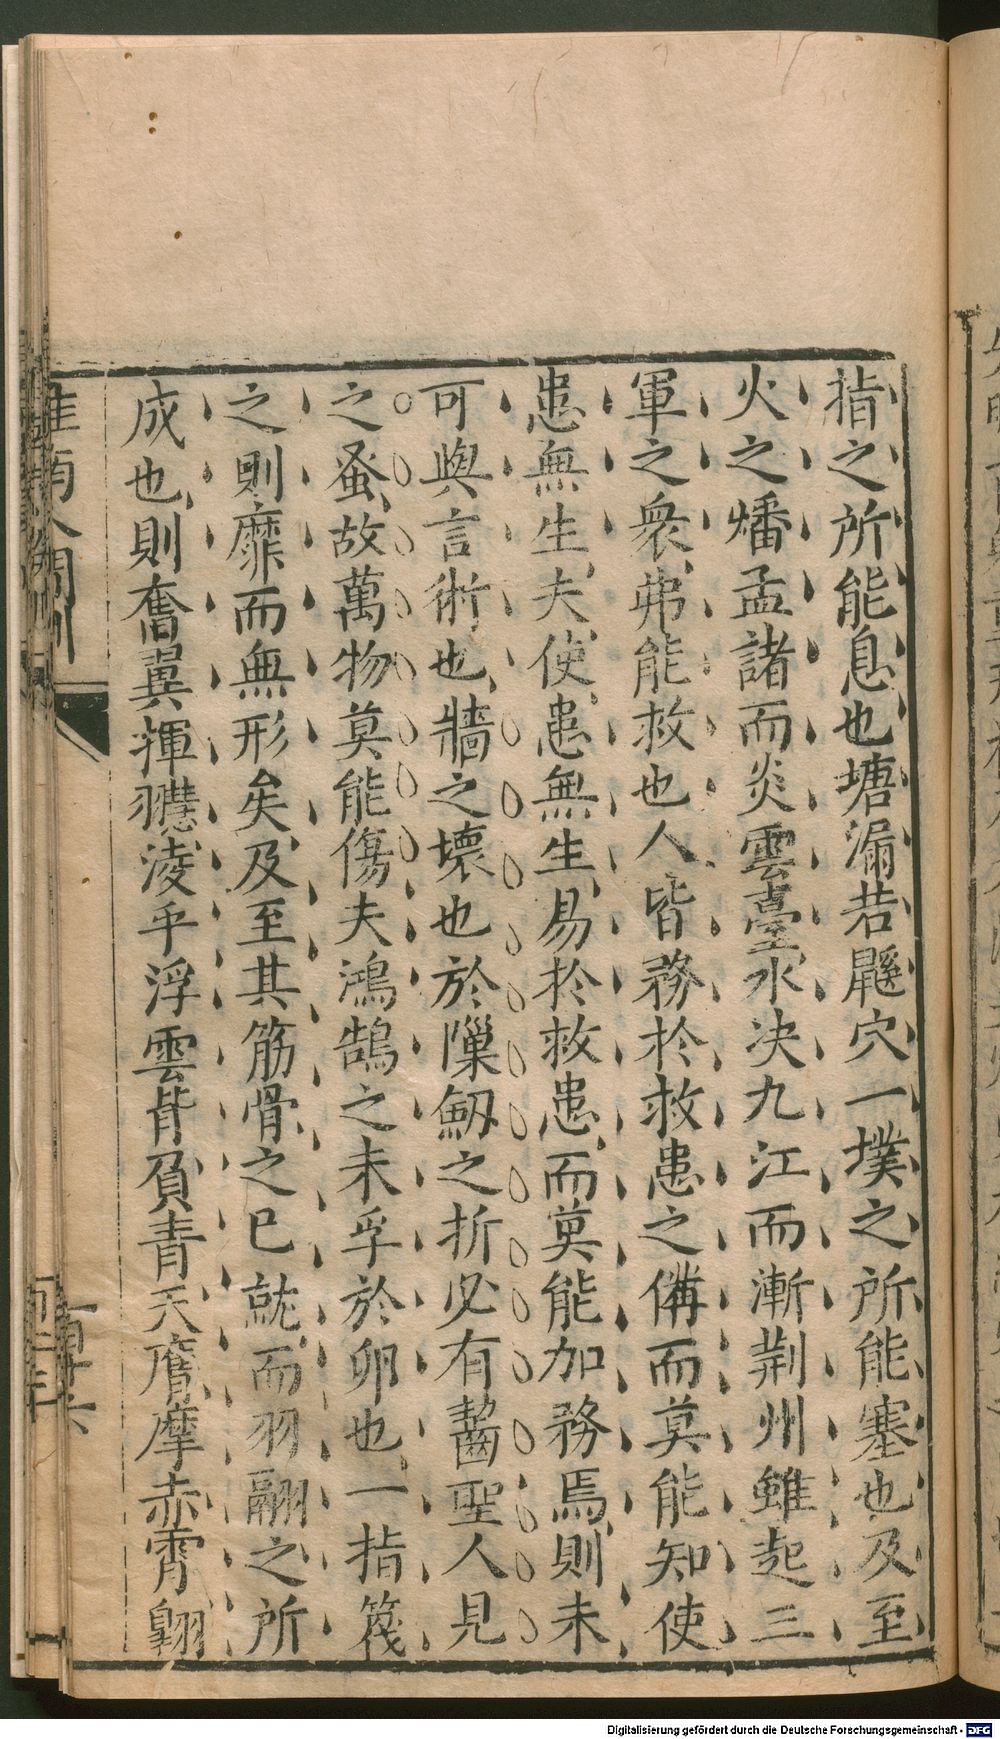 指之所能息也塘漏若鼷穴一墣之所能塞也及至
火之燔孟諸而炎雲臺水决九江而漸荆州雖起三
軍之衆弗能救也人皆務於救患之備而莫能知使
患無生夫使患無生易扵救患而莫能加務焉則未
可與言術也牆之壞也於隟劔之折必有齧聖人見
之蚤故萬物莫能傷夫鴻鵠之未孚於卵也一指篾
之則靡而無形矣及至其筋骨之已就而羽翮之所
成也則奮翼揮䎝淩乎浮雲背負青天膺摩赤霄翺
淮南人間訓
Digitalisierung gefördert durch die Deutsche Forschungsgemeinschaft - DFG